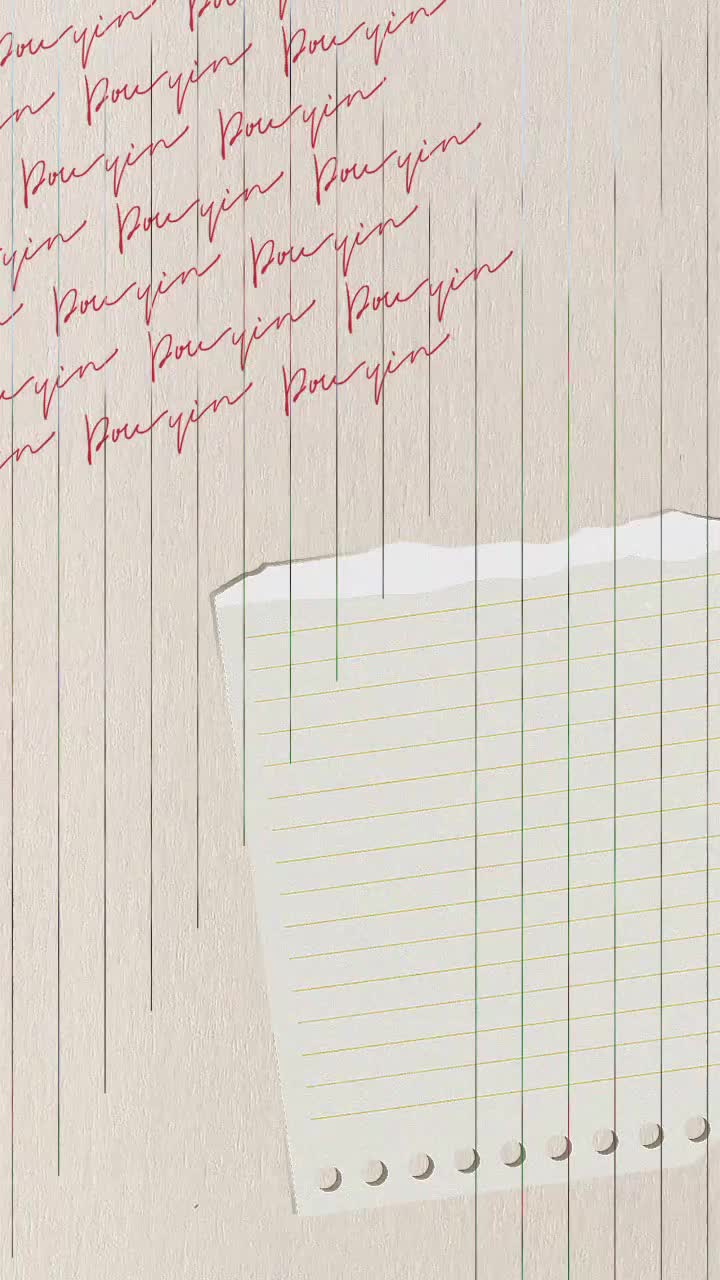 Douyin Dou
in Douyin Douyin
Douyin Douyin
yin Douyin Douyin
Douyin Douyin
uyin Douyin Douyin
in Douyin Douyin